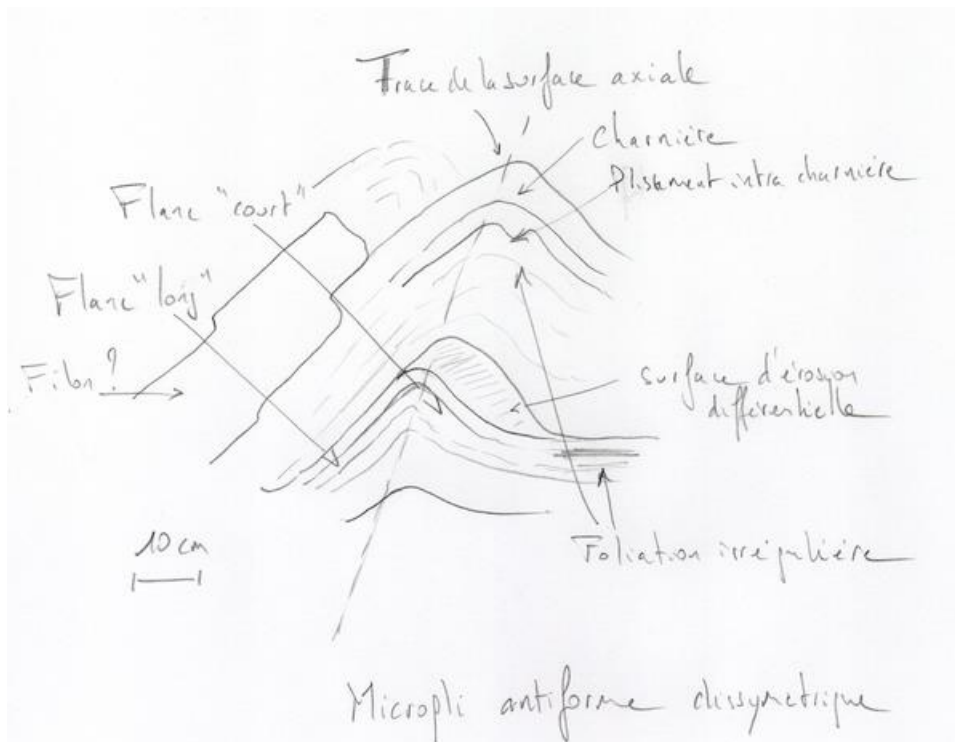 Trace de la surface axiale
Charnière
Plissement intra charnière
Flanc "court"
Flanc "long"
Filon ?
surface d'érosion
différentielle
10 cm
Foliation irrégulière
Micropli antiforme dissymetrique